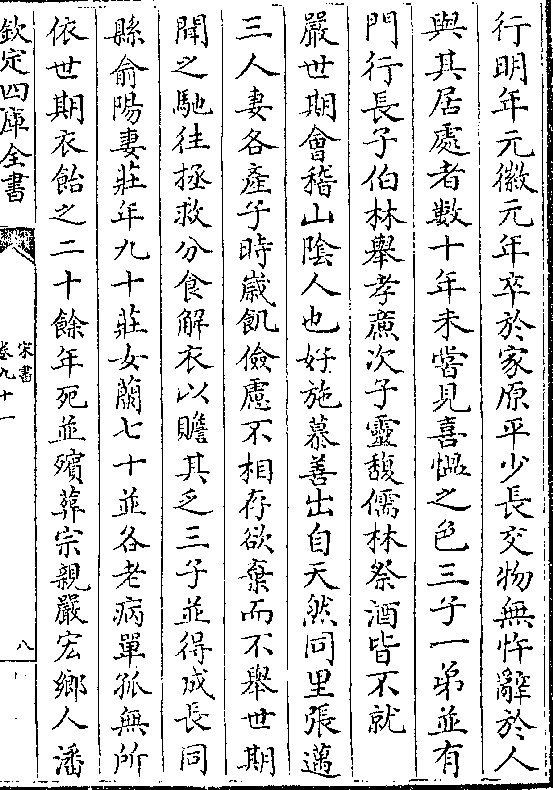 行明年元徽元年卒於家原平少長交物無忤辭於人
與其居處者數十年未嘗見喜慍之色三子一弟並有
門行長子伯林舉孝廉次子靈馥儒林祭酒皆不就
嚴世期會稽山陰人也好施慕善出自天然同里張邁
三人妻各產子時歲飢儉慮不相存欲棄而不舉世期
聞之馳往拯救分食解衣以贍其乏三子並得成長同
縣俞陽妻莊年九十莊女蘭七十並各老病單孤無所
依世期衣飴之二十餘年死並殯葬宗親嚴宏鄉人潘
欽定四庫全書
宋書
卷九十一
八